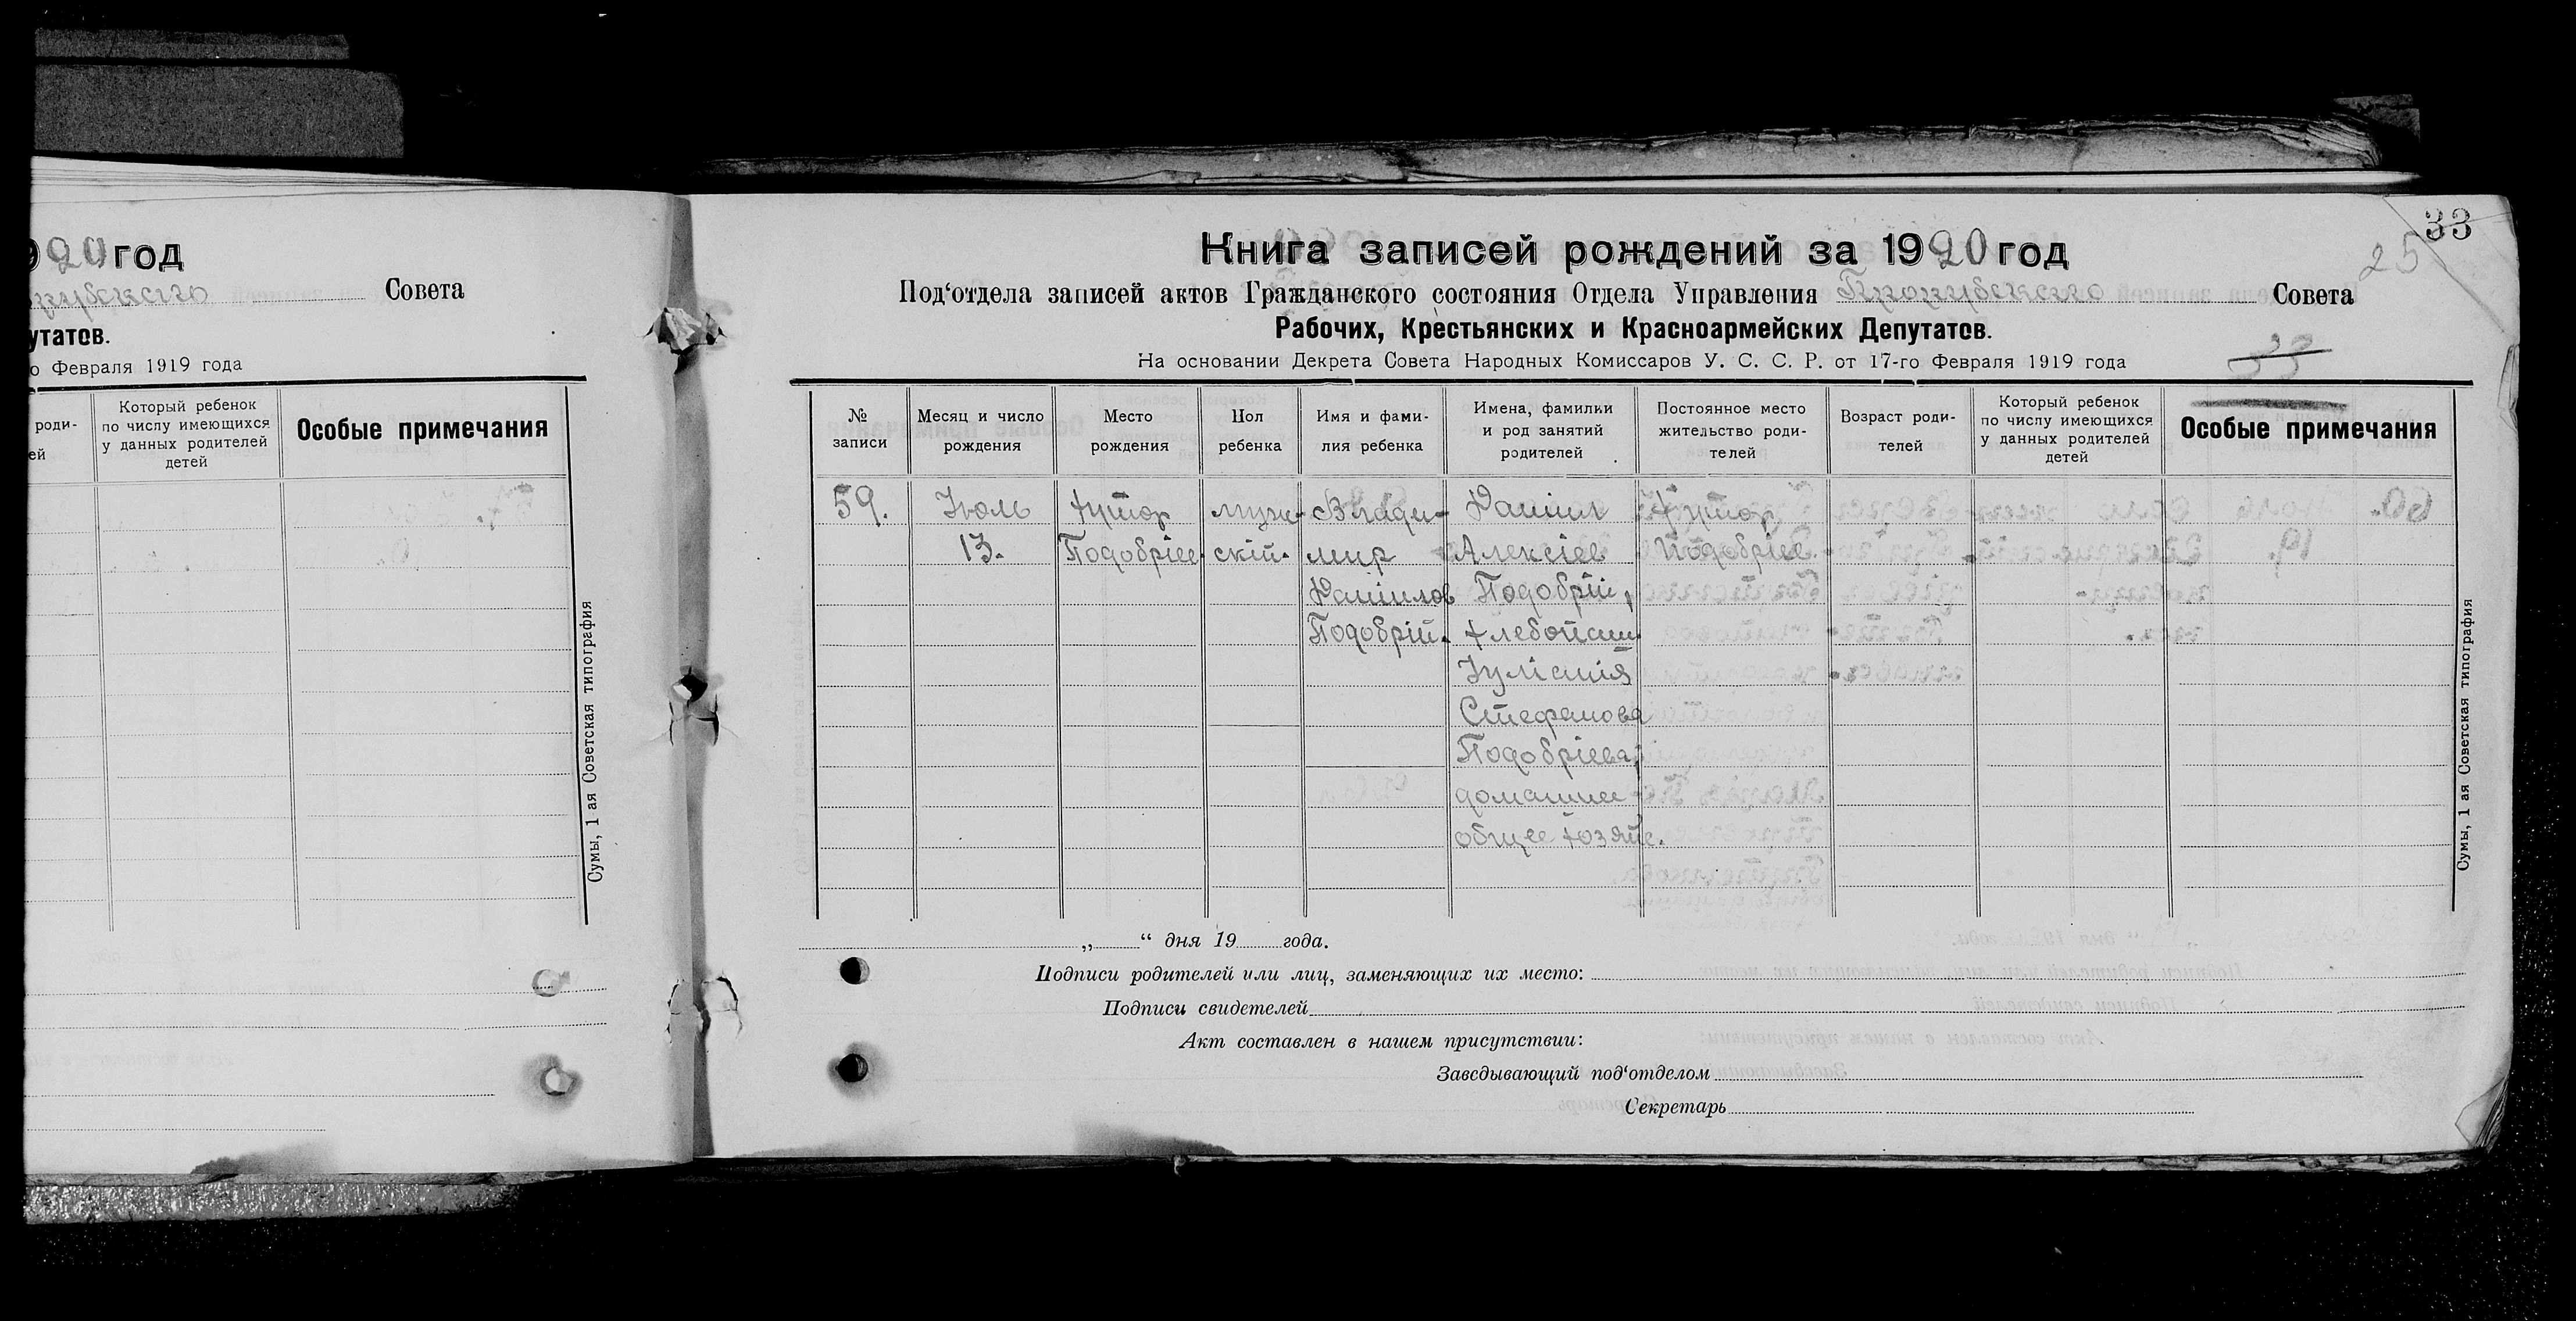 920 год
Совета
утатов.
о Февраля 1919 года
роди-
ей
Который ребенок
по числу имеющихся
у данных родителей
детей
Особые примечания
Сумы, 1 ая Советская типография
33
25
Книга записей рождений за 1920 год
Под‘отдела записей актов Гражданского состояния Отдела Управления Совета
Рабочих, Крестьянских и Красноармейских Депутатов.
На основании Декрета Совета Народных Комиссаров У. С. С. Р. от 17-го Февраля 1919 года
33
№
записи
Месяц и число
рождения
Место
рождения
Пол
ребенка
Имя и фами-
лия ребенка
Имена, фамилки
и род занятий
родителей
Постоянное место
жительство роди-
телей
Возраст роди-
телей
Который ребенок
по числу имеющихся
у данных родителей
детей
Особые примечания
59.
Июль
13.
Хутор
Подобріее
муже-
скій.
Влади-
мир
Даніилов
Подобрій.
Даніил
Алексіев
Подобрій,
хлебопаш.
Іуліанія
Стефанова
Подобріева,
домашнее
общее хозяйс.
Хутор
Подобріее
Сумы, 1 ая Советская типография
„ “ дня 19 года.
Подписи родителей или лиц, заменяющих их место:
Подписи свидетелей
Акт составлен в нашем присутствии:
Заведывающий под‘отделом
Секретарь